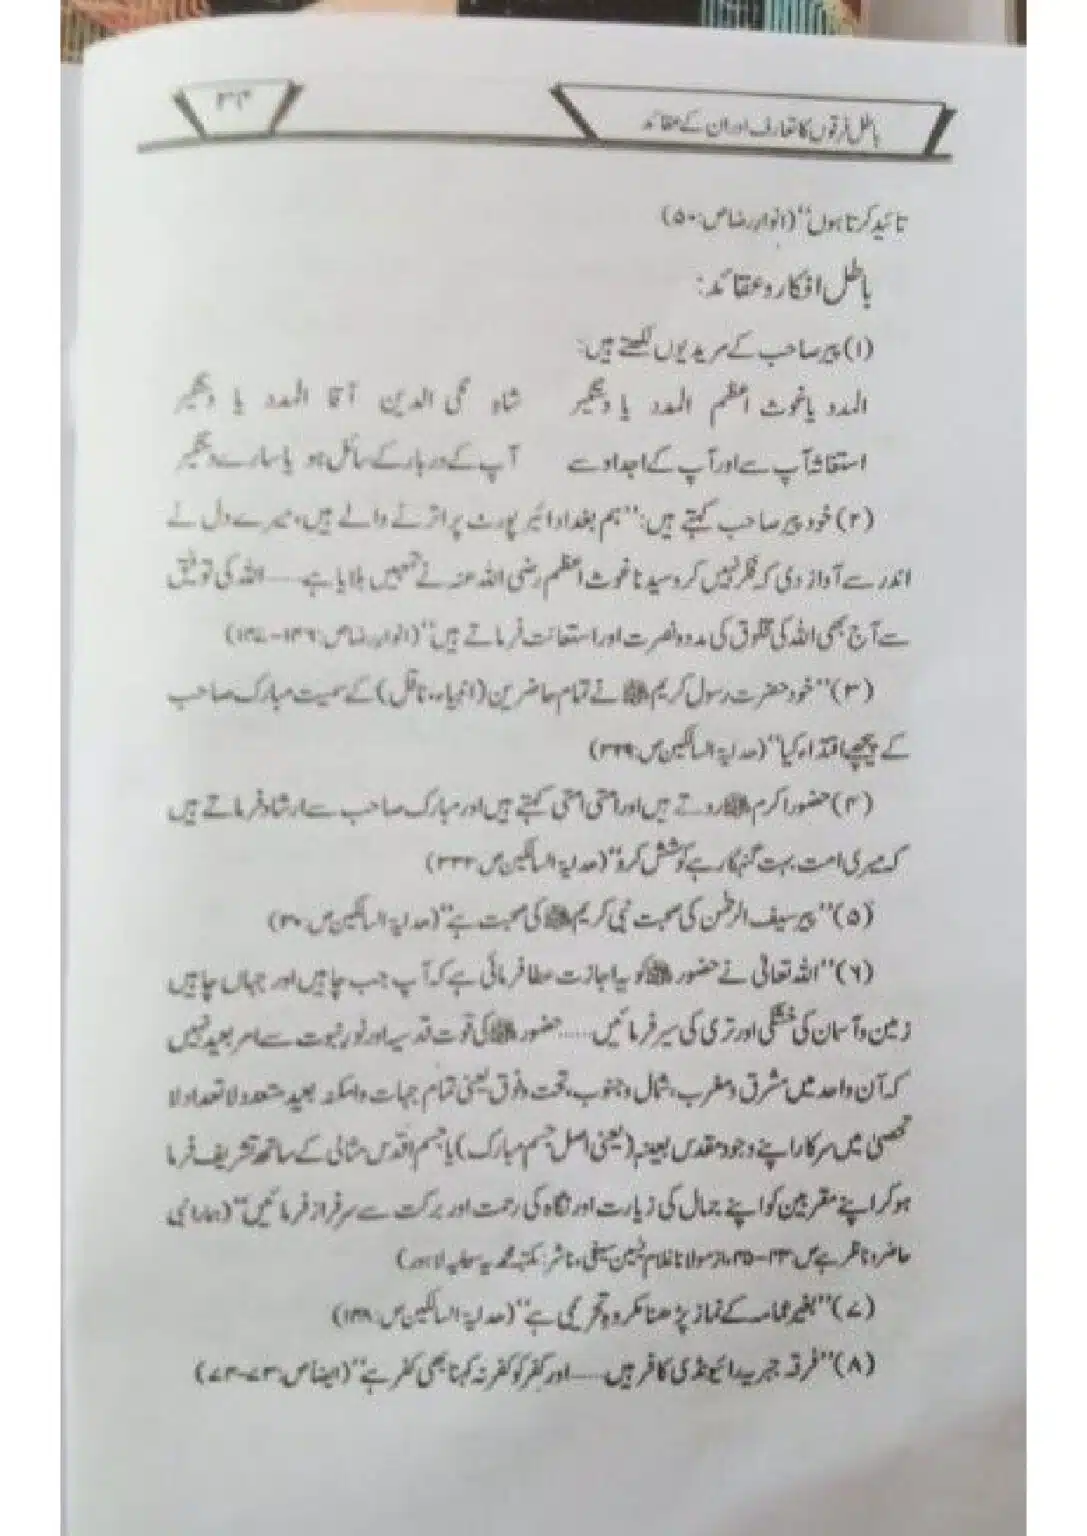 باطل فرقوں کا تعارف اور ان کے عقائد
تائید کرتا ہوں‘‘ (انوار رضا ص:۵۰)
باطل افکار و عقائد:
(۱) پیر صاحب کے مرید یوں لکھتے ہیں:
المدد یا غوث اعظم المدد یا دستگیر شاہ محی الدین آقا المدد یا دستگیر
استغاثہ آپ سے اور آپ کے اجداد سے آپ کے دربار کے سائل ہو یا سارے دستگیر
(۲) خود پیر صاحب کہتے ہیں: ’’ہم بغداد ائیر پورٹ پر اترنے والے ہیں، میرے دل نے
اندر سے آواز دی کہ فکر نہیں کرو سیدنا غوث اعظم رضی اللہ عنہ نے تمہیں بلایا ہے۔۔۔۔۔ اللہ کی توفیق
سے آج بھی اللہ کی مخلوق کی مدد و نصرت اور استعانت فرماتے ہیں‘‘ (انوار رضا ص:۱۳۶-۱۳۷)
(۳) ’’خود حضرت رسول کریم ﷺ نے تمام حاضرین (انبیاء، ناقل) کے سمیت مبارک صاحب
کے پیچھے اقتداء کیا‘‘ (ھدایۃ السالکین ص:۳۲۹)
(۴) حضور اکرم ﷺ روتے ہیں اور امتی امتی کہتے ہیں اور مبارک صاحب سے ارشاد فرماتے ہیں
کہ میری امت بہت گنہگار ہے کوشش کرو‘‘ (ھدایۃ السالکین ص:۳۳۲)
(۵) ’’پیر سیف الرحمٰن کی محبت نبی کریم ﷺ کی محبت ہے‘‘ (ھدایۃ السالکین ص:۳۰)
(۶) ’’اللہ تعالیٰ نے حضور ﷺ کو یہ اجازت عطا فرمائی ہے کہ آپ جب چاہیں اور جہاں چاہیں
زمین و آسمان کی خشکی اور تری کی سیر فرمائیں۔۔۔۔۔ حضور ﷺ کی قوت قدسیہ اور نور نبوت سے امر بعید نہیں
کہ آن واحد میں مشرق و مغرب، شمال و جنوب، تحت و فوق یعنی تمام جہات و امکنہ بعیدہ متعددہ لا تعداد ولا
تحصیٰ میں سرکار اپنے وجود مقدس بعینہ (یعنی اصل جسم مبارک) یا جسم اقدس مثالی کے ساتھ تشریف فرما
ہو کر اپنے مقربین کو اپنے جمال کی زیارت اور نگاہ کی رحمت اور برکت سے سرفراز فرمائیں‘‘ (ہمارا نبی
حاضر و ناظر ہے ص:۲۴-۲۵، از مولانا غلام یٰسین سیفی، ناشر: مکتبہ محمدیہ سیفیہ لاہور)
(۷) ’’بغیر عمامہ کے نماز پڑھنا مکروہ تحریمی ہے‘‘ (ھدایۃ السالکین ص:۱۳۸)
(۸) ’’فرقہ جبریہ رائیونڈی کافر ہیں۔۔۔۔ اور کفر کو کفر نہ کہنا بھی کفر ہے‘‘ (ایضا ص:۷۳-۷۴)